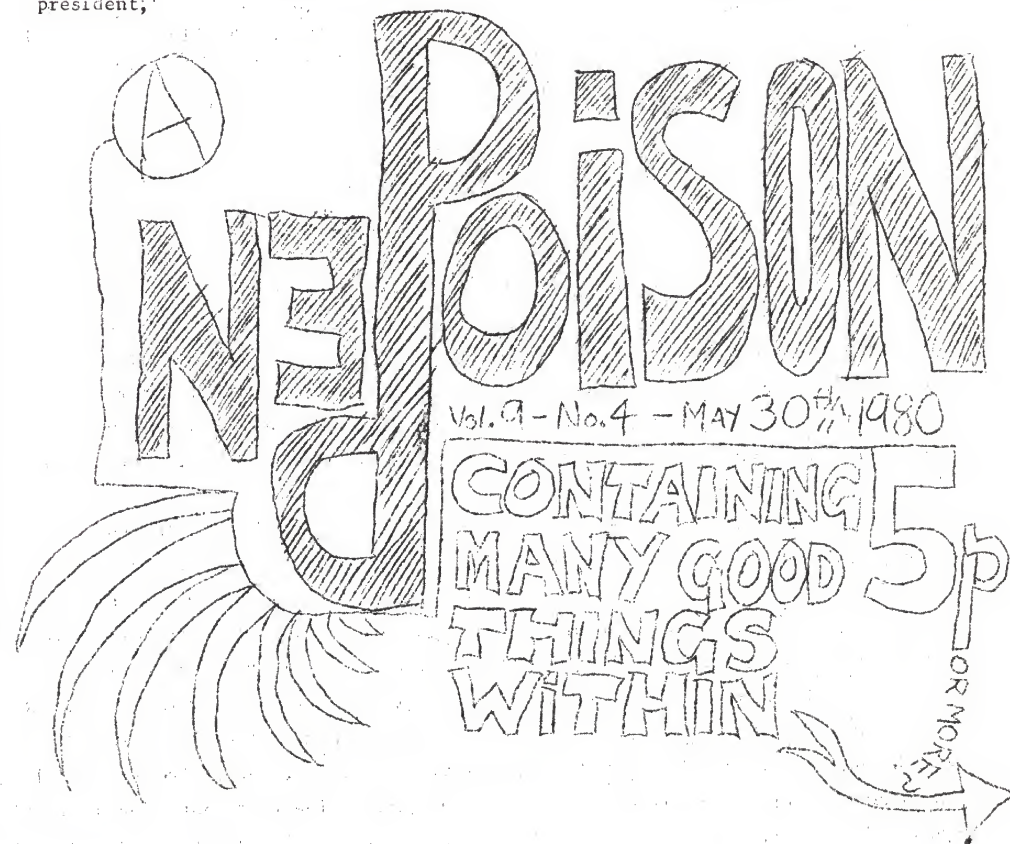 president;'
A
POiSON
PEN
Vol. 9 - No. 4 - MAY 30th 1980
CONTAINING
MANY GOOD
THINGS
WiTHIN
5p
OR MORE?